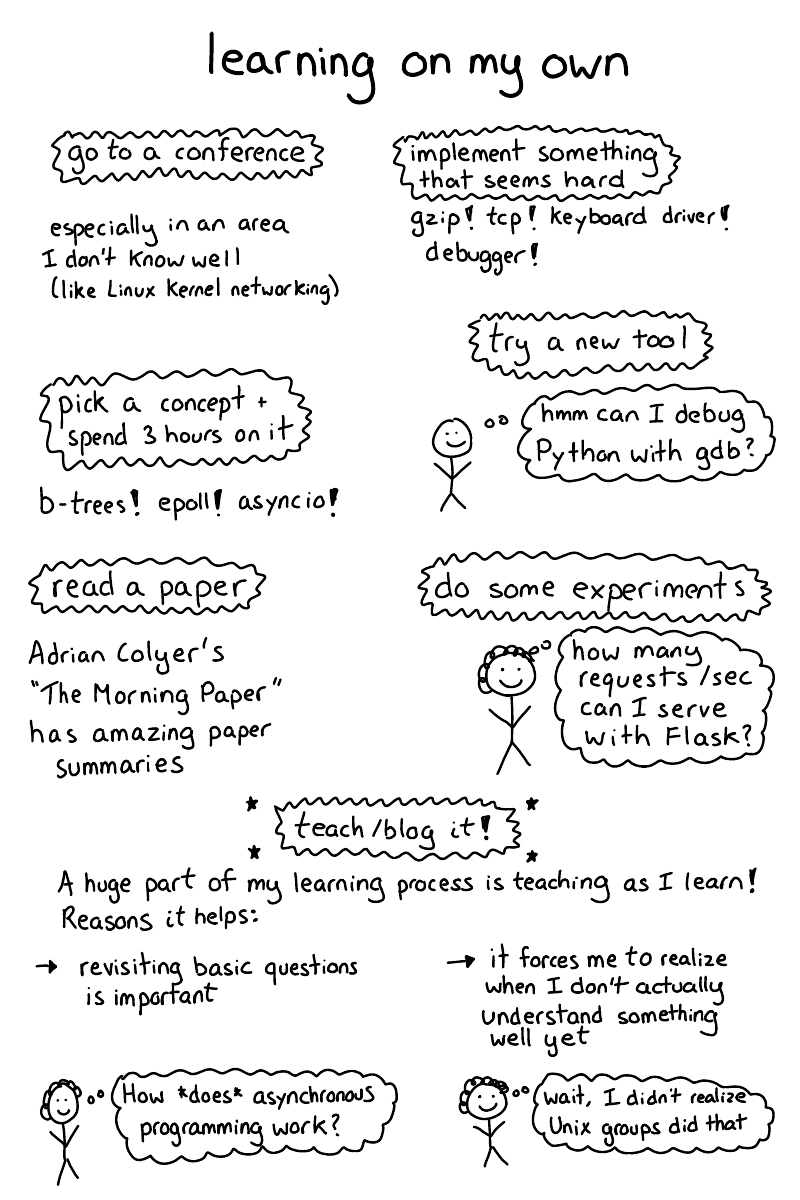 learning on my own
go to a conference
especially in an area
I don't know well
(like Linux kernel networking)
implement something
that seems hard
gzip! tcp! keyboard driver!
debugger!
try a new tool
hmm can I debug
Python with gdb?
pick a concept +
spend 3 hours on it
b-trees! epoll! asyncio!
read a paper
Adrian Colyer's
"The Morning Paper"
has amazing paper
summaries
do some experiments
how many
requests/sec
can I serve
with Flask?
teach/blog it!
A huge part of my learning process is teaching as I learn!
Reasons it helps:
→ revisiting basic questions
is important
→ it forces me to realize
when I don't actually
understand something
well yet
How *does* asynchronous
programming work?
wait, I didn't realize
Unix groups did that